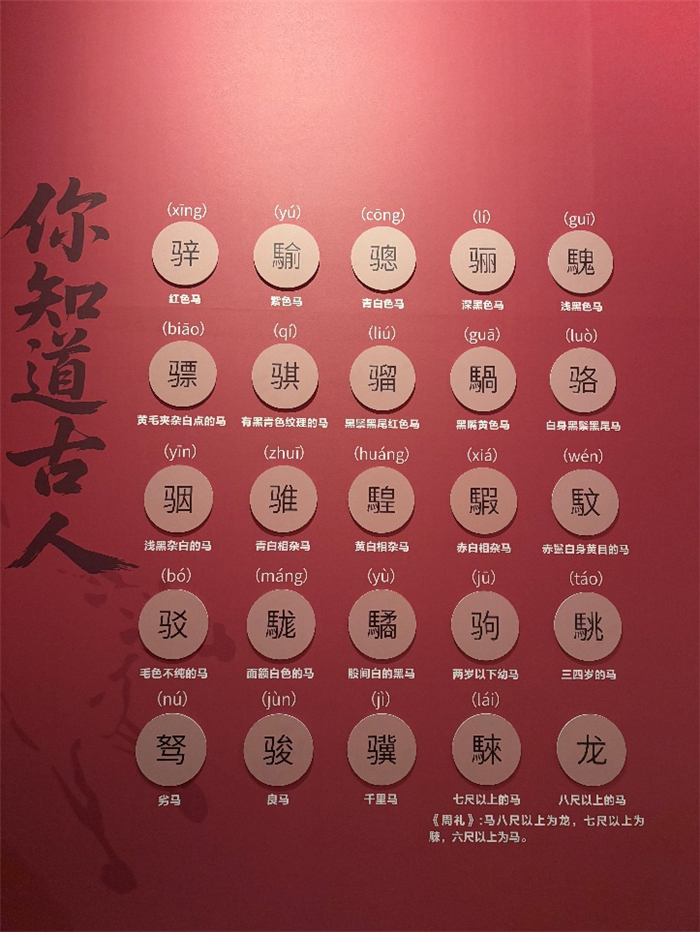 你知道古人
(xīng) (yú) (cōng) (lí) (guī)
骍 騟 骢 骊 騩
红色马 紫色马 青白色马 深黑色马 浅黑色马
(biāo) (qí) (liú) (guā) (luò)
骠 骐 骝 騧 骆
黄毛夹杂白点的马 有黑青色纹理的马 黑鬃黑尾红色马 黑嘴黄色马 白身黑鬃黑尾马
(yīn) (zhuī) (huáng) (xiá) (wén)
骃 骓 騜 騢 馼
浅黑杂白的马 青白相杂马 黄白相杂马 赤白相杂马 赤鬣白身黄目的马
(bó) (máng) (yù) (jū) (táo)
驳 駹 驈 驹 駣
毛色不纯的马 面额白色的马 股间白的黑马 两岁以下幼马 三四岁的马
(nú) (jùn) (jì) (lái)
驽 骏 骥 騋 龙
劣马 良马 千里马 七尺以上的马 八尺以上的马
《周礼》:马八尺以上为龙，七尺以上为
騋，六尺以上为马。